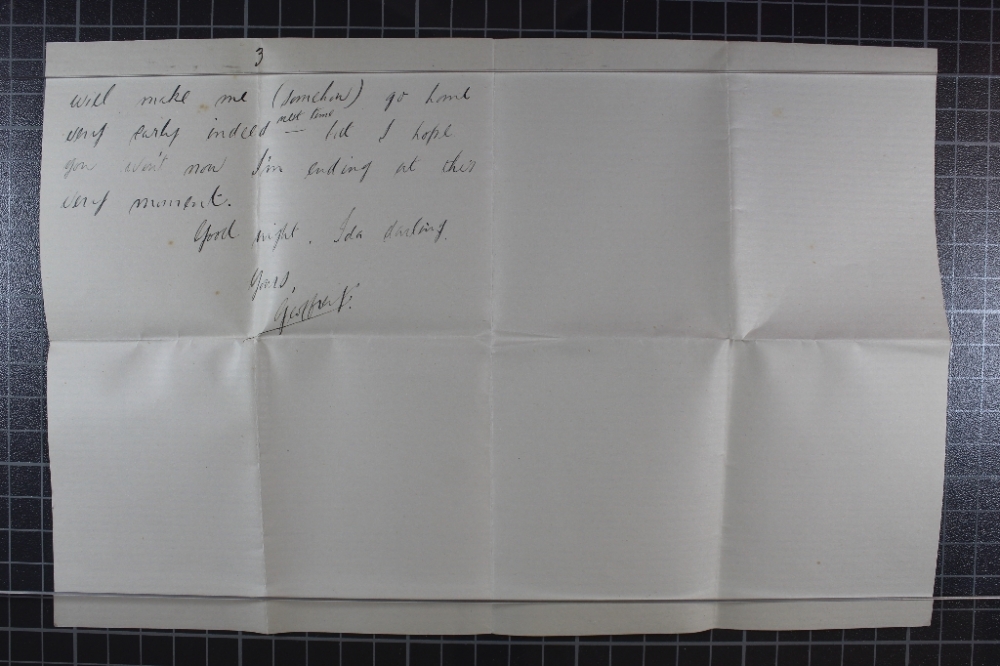 3
will make me (somehow) go home
very early indeed next time — but I hope
you won't now I'm ending at this
very moment.
Good night, Ida darling.
Yours,
Geoffrey.